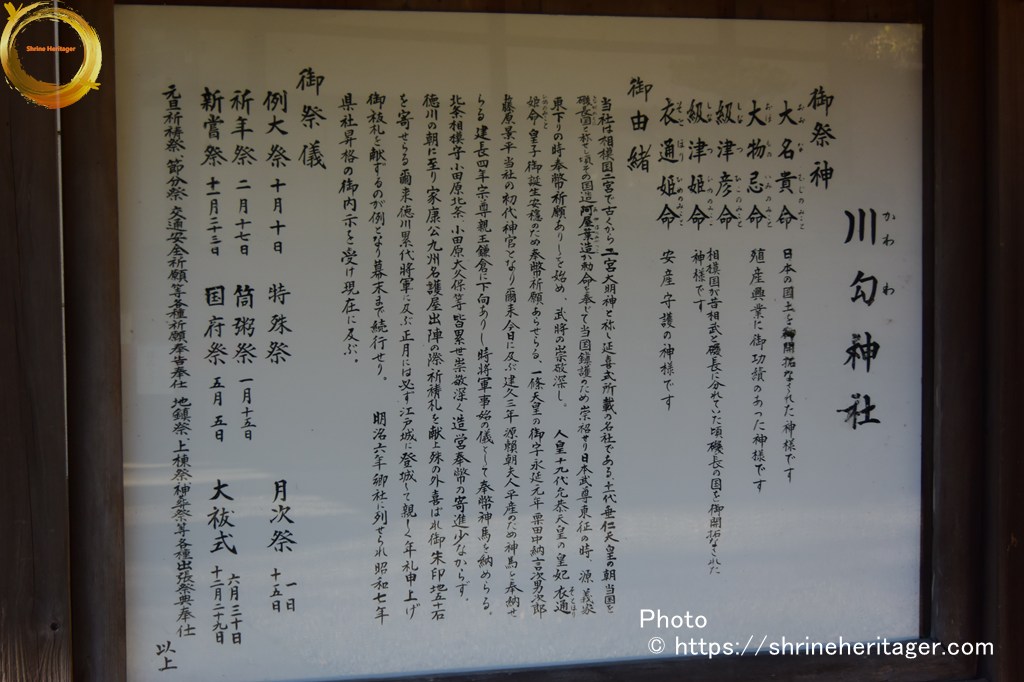 川勾神社
かわわ
御祭神
大名貴命 日本の国土を御開拓なされた神様です
おおなむじのみこと
大物忌命 殖産興業に御功績のあった神様です
おおものいみのみこと
級津彦命 相模国が昔相武と磯長に分れていた頃磯長の国を御開拓なされた
しなつひこのみこと
級津姫命 神様です
しなつひめのみこと
衣通姫命 安産守護の神様です
そとほりひめのみこと
御由緒
当社は相模国二宮で古くから二宮大明神と称し延喜式所載の名社である十一代垂仁天皇の朝当国を
磯長国と称せし頃その国造阿屋葉造が勅命を奉じて当国鎮護のため崇祀せり日本武尊東征の時、源義家
東下りの時奉幣祈願ありしを始め、武将の崇敬深し。 人皇十九代允恭天皇の皇妃衣通
姫命皇子御誕生安穏のため奉幣祈願あらせらる。一條天皇の御宇永延元年粟田中納言次男次郎
藤原景平当社の初代神官となり爾来今日に及ぶ建久三年源頼朝夫人平産のため神馬を奉納せ
らる建長四年宗尊親王鎌倉に下向ありし時将軍事始の儀として奉幣神馬を納めらる。
北条相模守小田原北条、小田原大久保等皆累世崇敬深く造営奉幣の寄進少なからず。
徳川の朝に至り家康公九州名護屋出陣の際祈祷札を献上殊の外喜ばれ御朱印地五十石
を寄せらる爾来徳川累代将軍に及ぶ正月には必ず江戸城に登城して親しく年礼申上げ
御祓札を献ずるのが例となり幕末まで続行せり。 明治六年郷社に列せられ昭和七年
県社昇格の御内示を受け現在に及ぶ。
御祭儀
例大祭 十月十日 特殊祭 月次祭 一日 十五日
祈年祭 二月十七日 筒粥祭 一月十五日
新嘗祭 十一月二十三日 国府祭 五月五日 大祓式 六月三十日 十二月二十九日
元旦祈祷祭、節分祭 交通安全祈願等各種祈願奉告奉仕 地鎮祭、上棟祭神葬祭等各種出張祭典奉仕
以上
Shrine Heritager
Photo
© https://shrineheritager.com